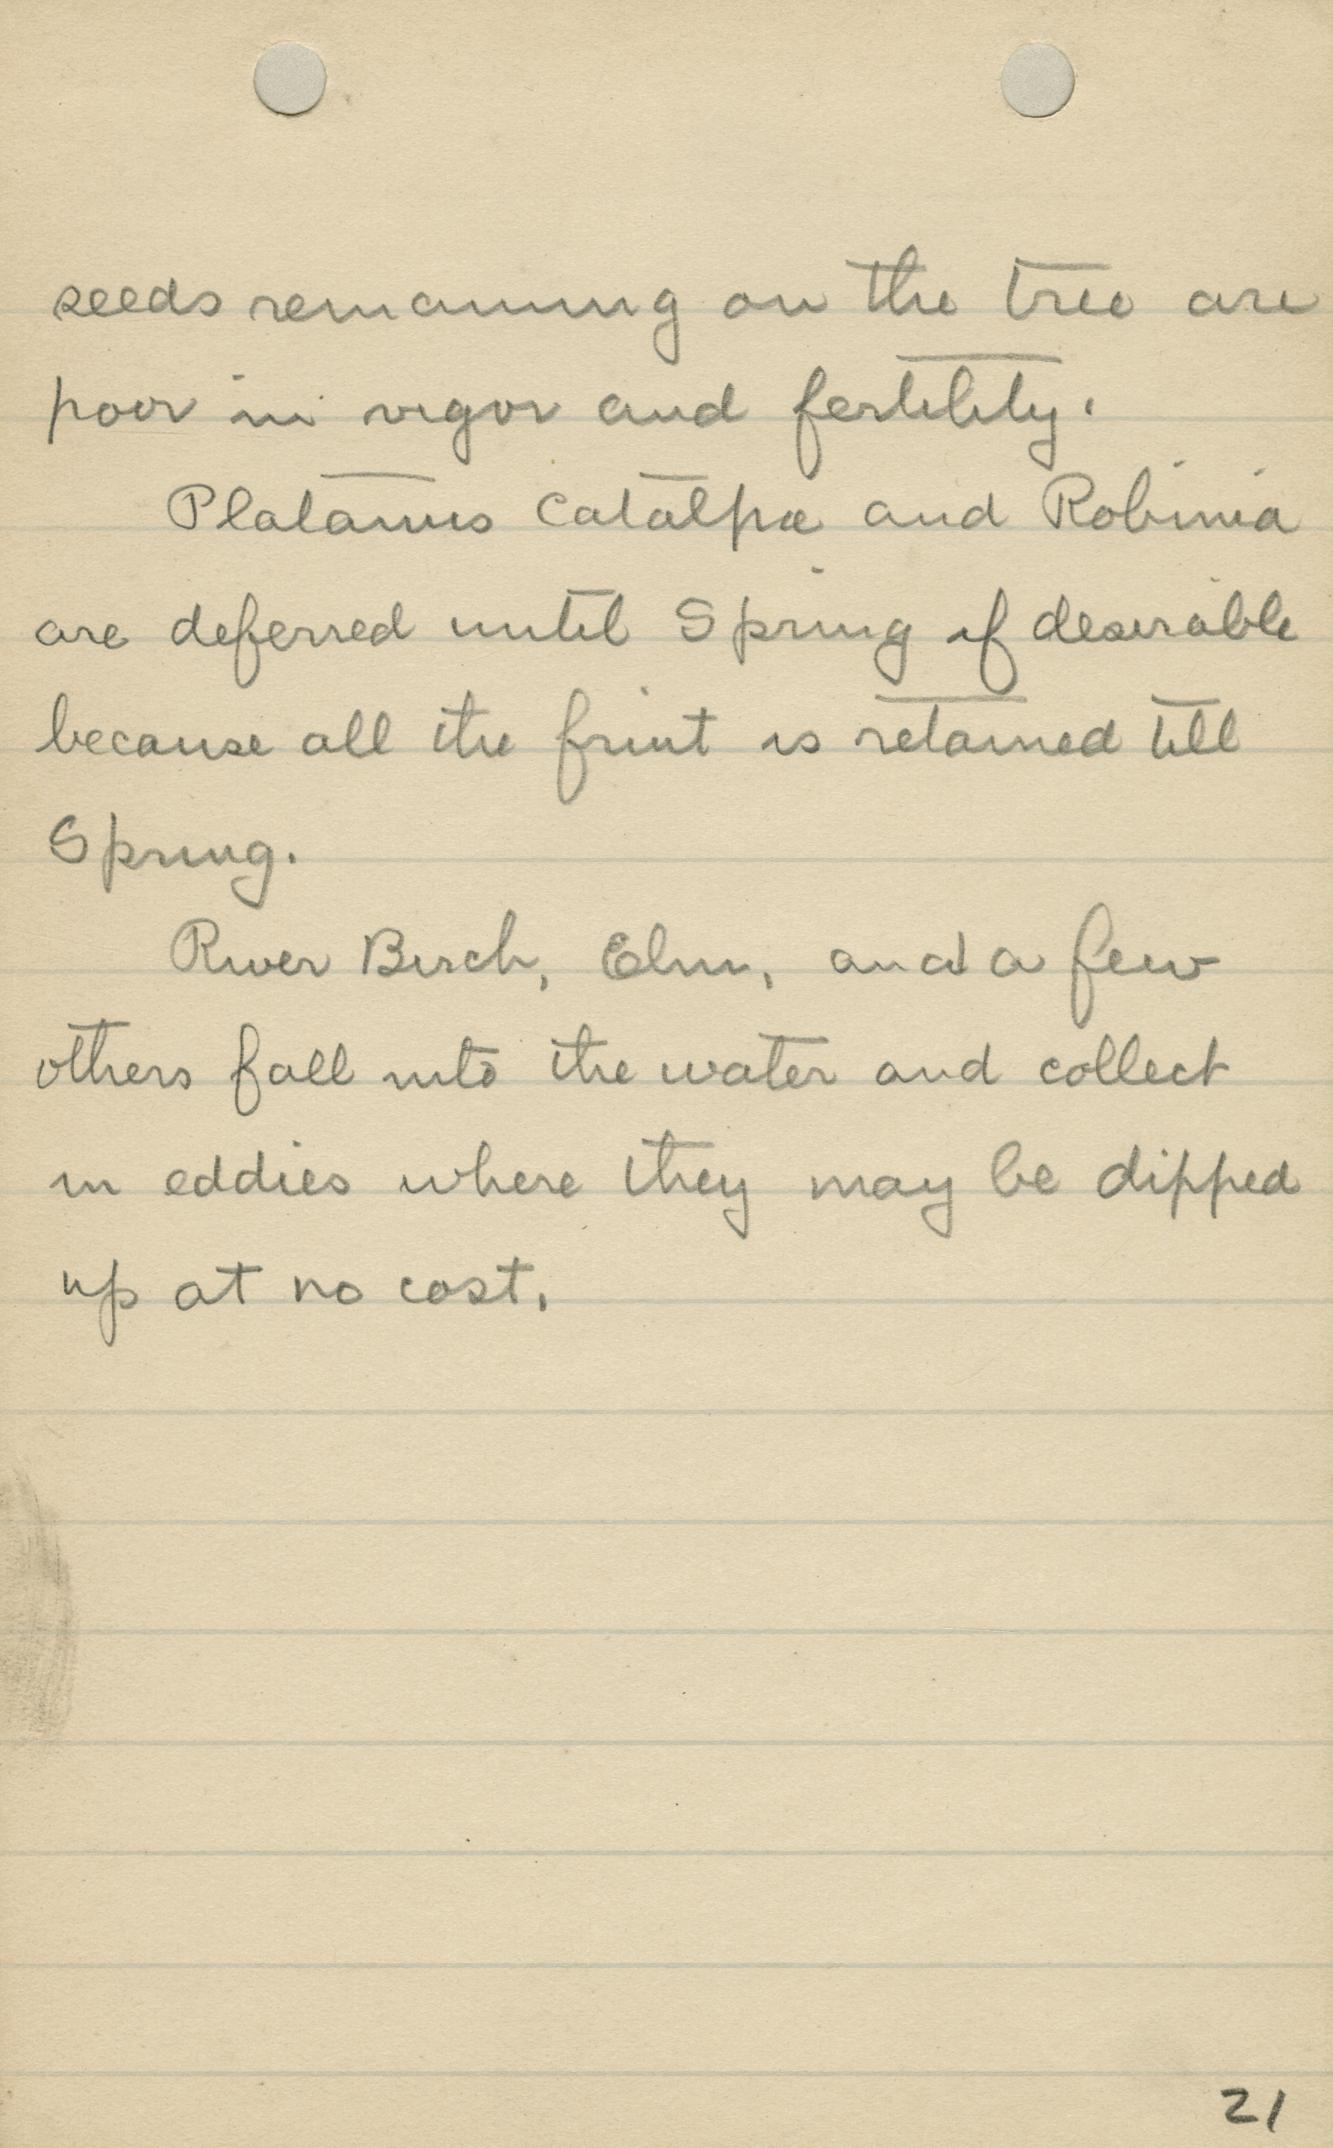 seeds remaining on the tree are
poor in vigor and fertility.
Platanus Catalpa and Robinia
are deferred until Spring if desirable
because all the fruit is retained till
Spring.
River Birch, Elm, and a few
others fall into the water and collect
in eddies where they may be dipped
up at no cost.
21